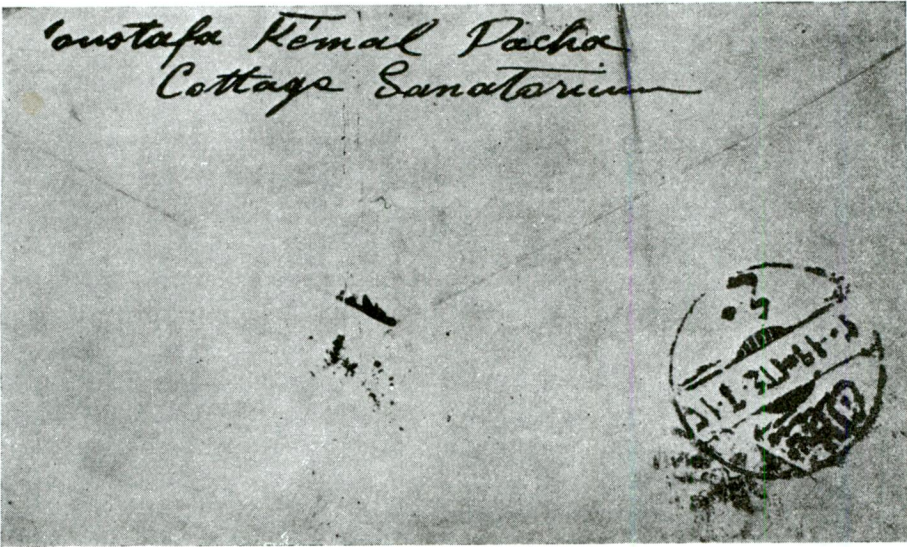 'oustafa Kémal Pacha
Cottage Sanatorium